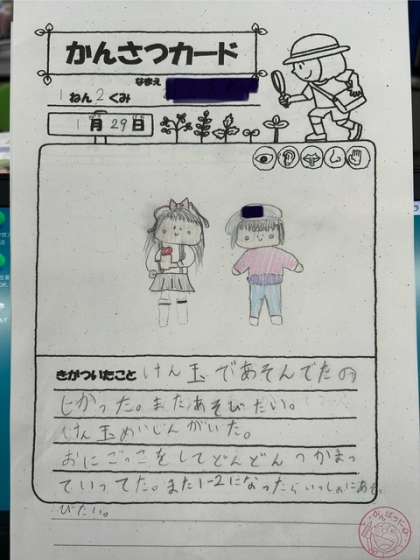 かんさつカード
なまえ
1ねん2くみ
1月29日
きがついたこと けん玉であそんでたの
しかった。またあそびたい。
けん玉めいじんがいた。
おにごっこをしてどんどんつかまっ
ていってた。また1-2になったらいっしょにあそ
びたい。